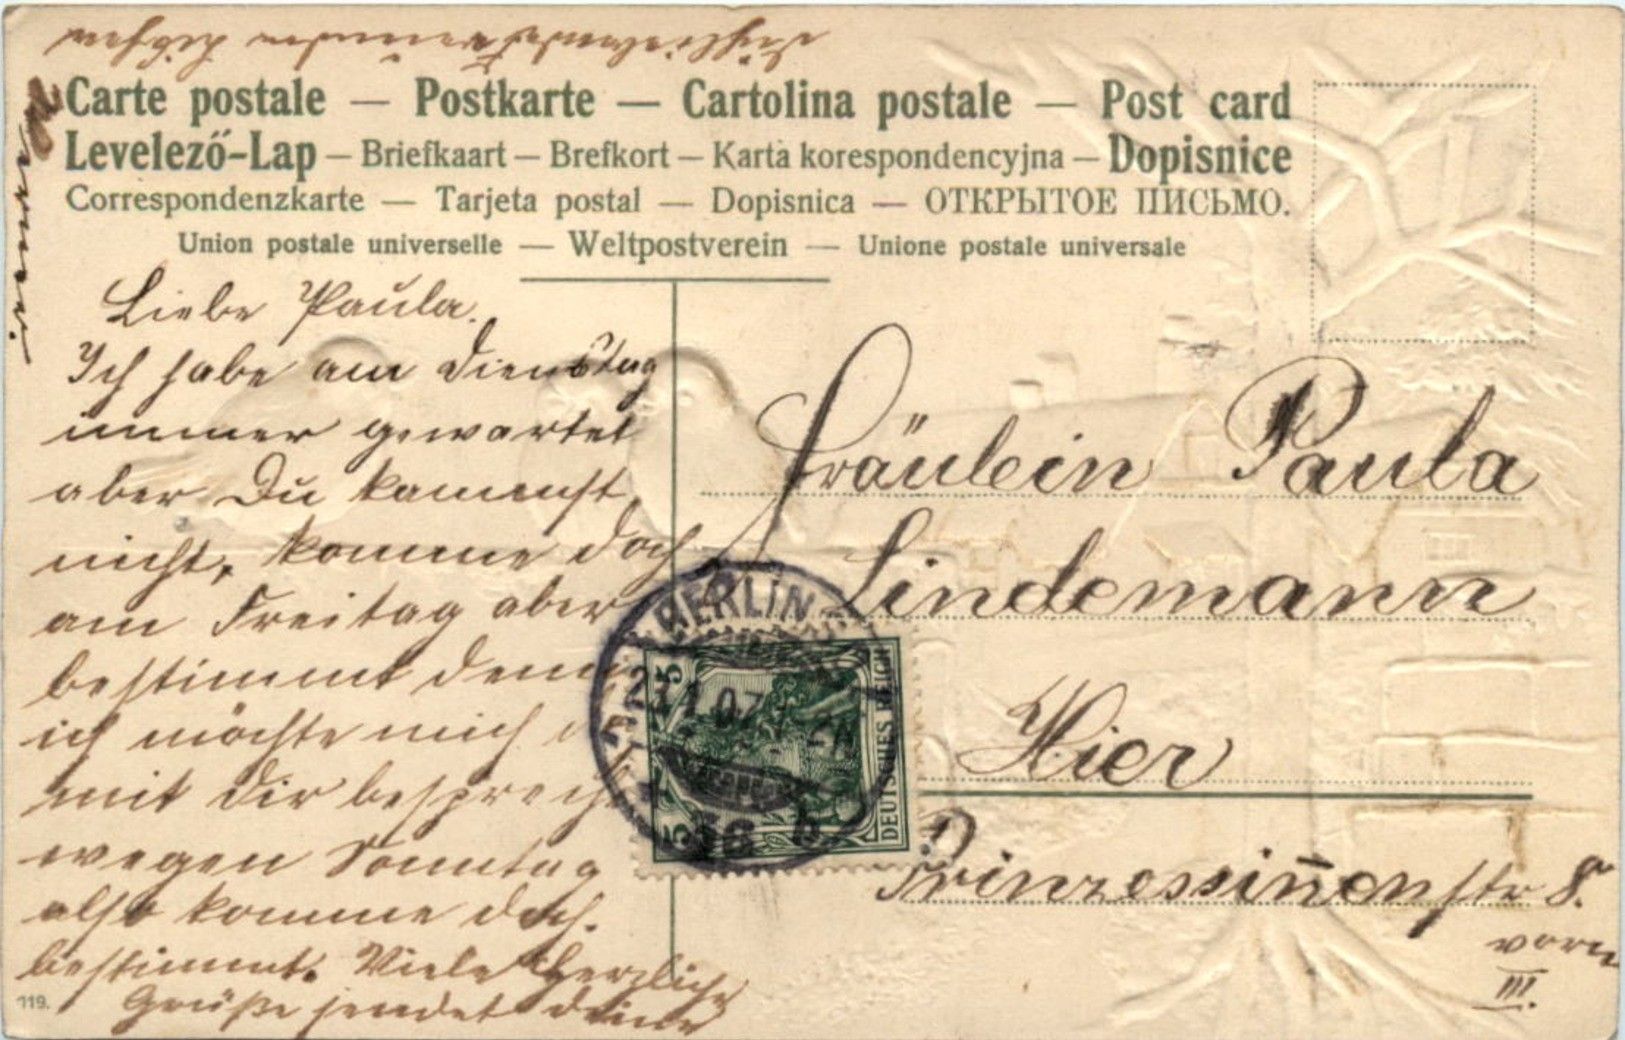 Carte postale — Postkarte — Cartolina postale — Post card
Levelező-Lap — Briefkaart — Brefkort — Karta korespondencyjna — Dopisnice
Correspondenzkarte — Tarjeta postal — Dopisnica — ОТКРЫТОЕ ПИСЬМО.
Union postale universelle — Weltpostverein — Unione postale universale
Liebe Paula.
Ich habe am Dienstag
immer gewartet
aber Du kammst
nicht, komme doch
am Freitag aber
bestimmt denn
ich möchte mich
mit Dir besprechen
wegen Sonntag
also komme doch.
bestimmt. Viele Herzliche
Grüße sendet Deine
119.
Fräulein Paula
Lindemann
Hier
Prinzessinnenstr 8.
vorn
III.
BERLIN
07
36 b
5
5
DEUTSCHES REICH